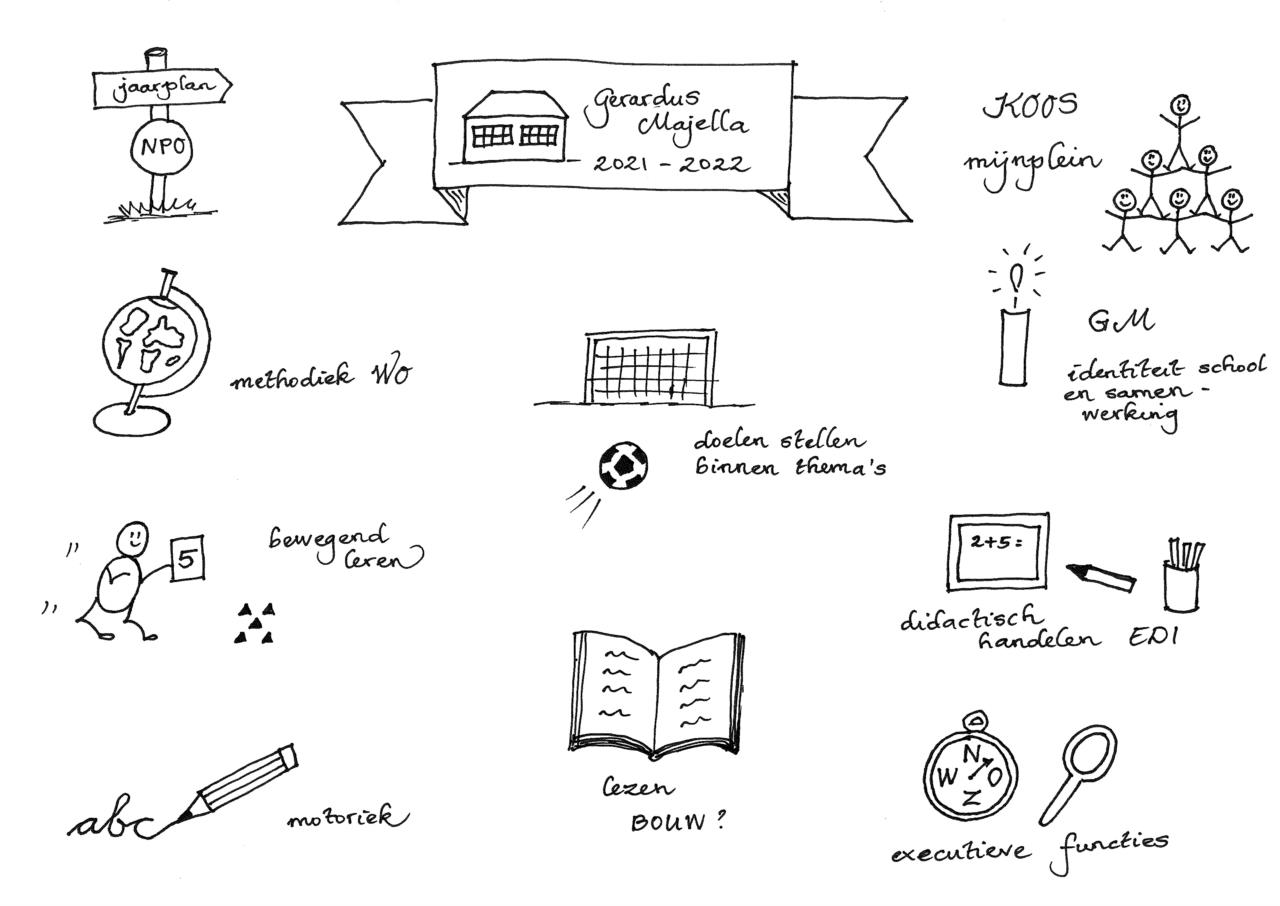 jaarplan
NPO
Gerardus
Majella
2021 - 2022
KOOS
mijnplein
methodiek WO
GM
identiteit school
en samen -
werking
doelen stellen
binnen thema's
bewegend
leren
5
2+5=
didactisch
handelen EDI
abc
motoriek
lezen
BOUW?
N
W O
Z
executieve functies